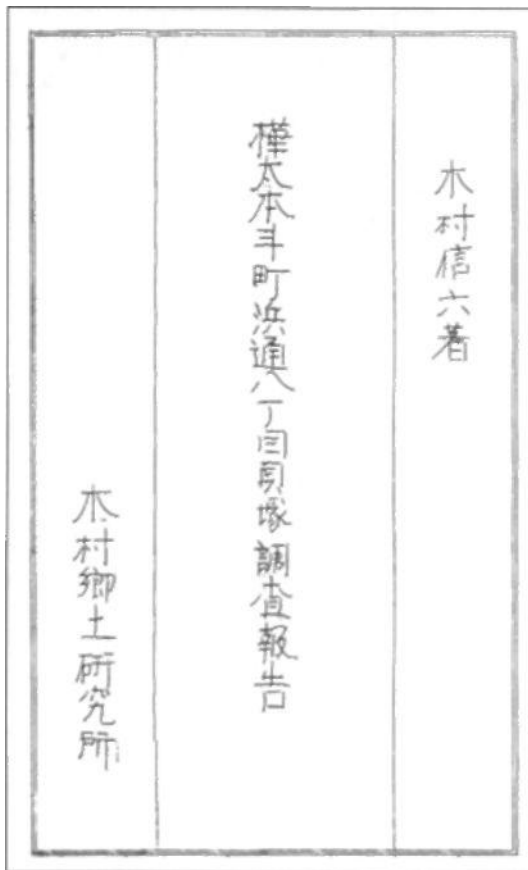 木村信六著
樺太本斗町浜通八丁目貝塚調査報告
木村郷土研究所